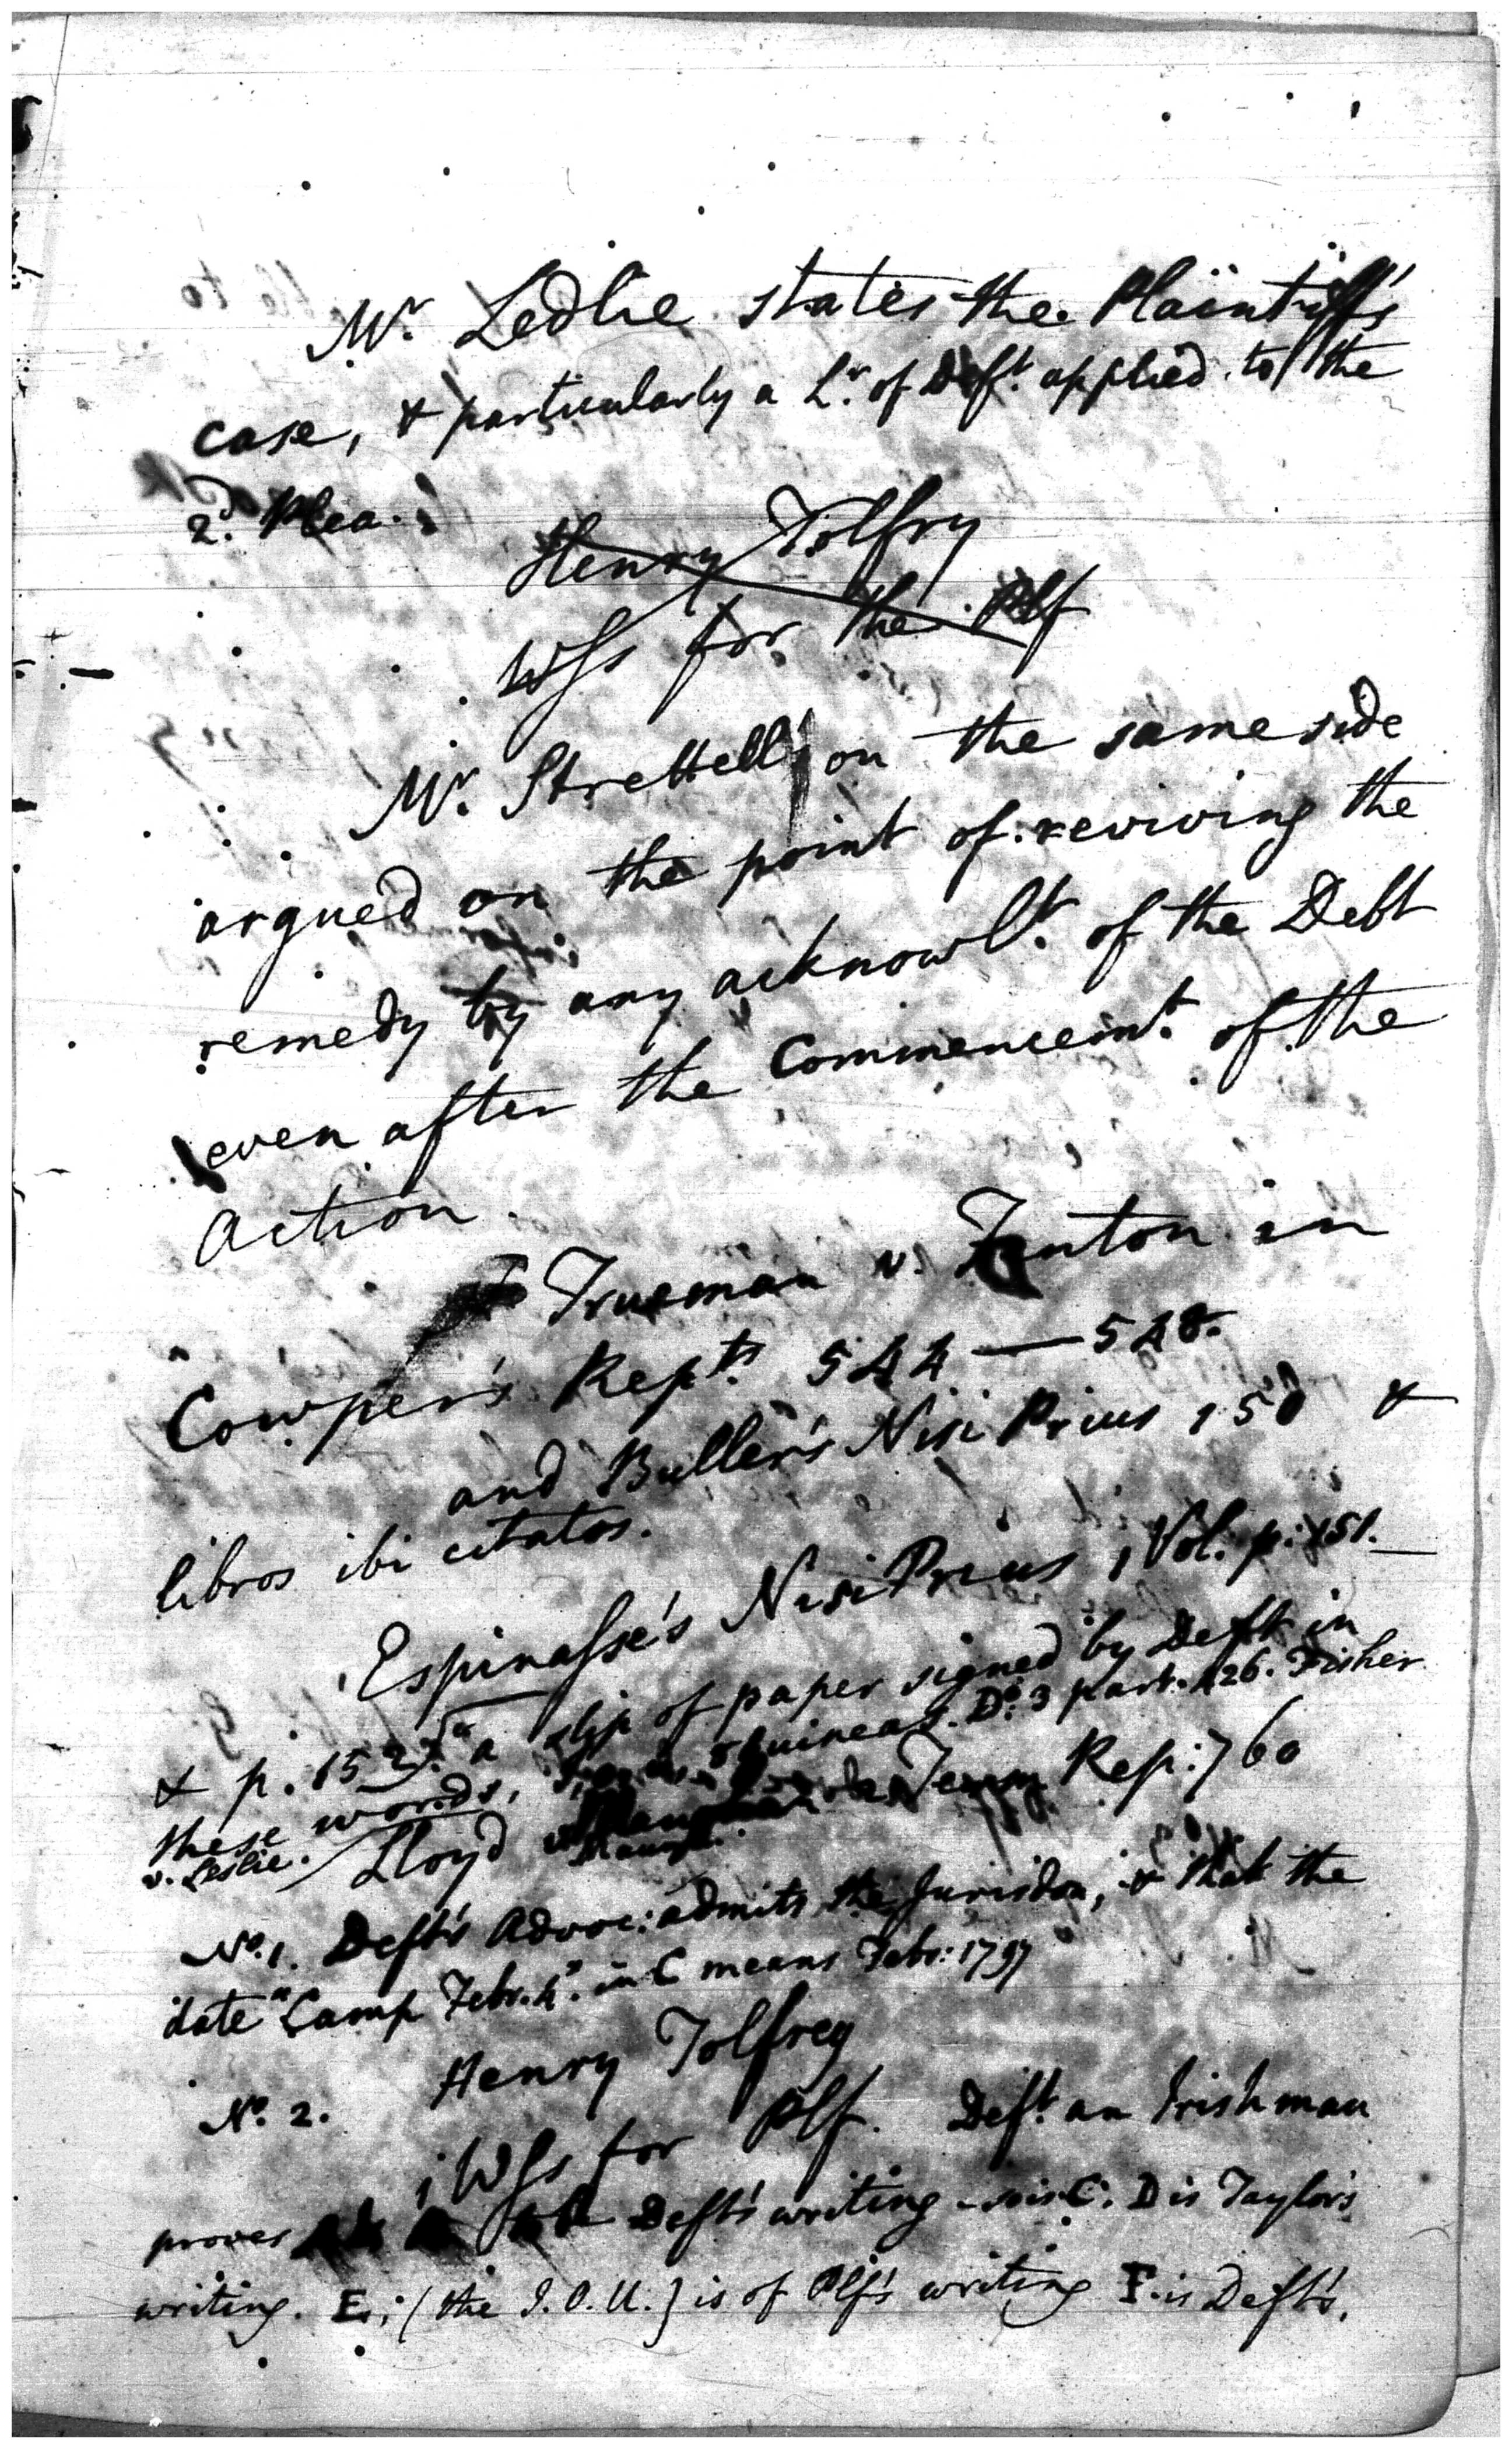 Mr. Ledlie states the Plaintiff's
case, & particularly a Lr. of Deft. applied to the
2d. Plea.
Henry Tolfry
Wss for the Plf
Mr. Strettell on the same side
argued on the point of reviving the
remedy by any acknowlt. of the Debt
even after the Commencemt. of the
Action.
Trueman v. Fenton in
Cowper's Repts. 544 — 548.
and Buller's Nisi Prius 150 &
libros ibi citatos.
Espinasse's Nisi Prius 1 Vol. p. 151.
& p. 152. a slip of paper signed by Deft in
these words, guineas. Do. 3 part. 426. Fisher
v. Leslie. Lloyd v. Maung Term Rep: 760
No. 1. Deft's Advoc: admits the Jurisdon, & that the
date "Camp Febr. 4". in C means Febr: 1797
Henry Tolfrey
No. 2.
1 Wss for Plf. Deft. an Irishman
proves Deft's writing - so is C. D is Taylor's
writing. E; (the I.O.U.) is of Plf's writing F. is Deft's.